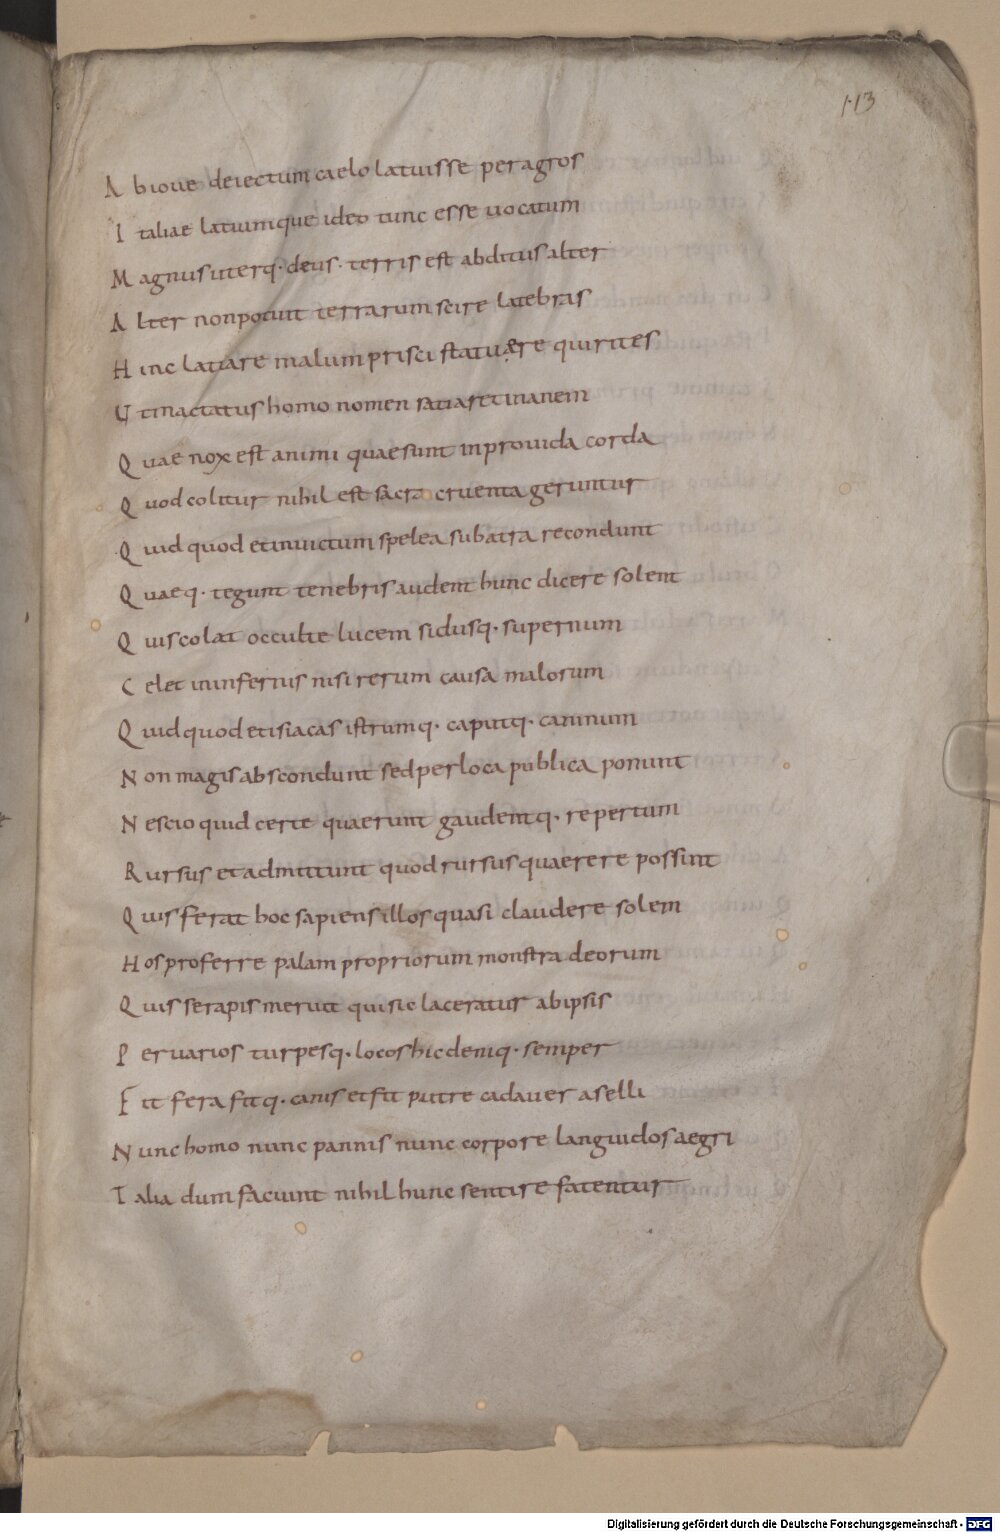 113
A bioue deiectum caelo latuisse per agros
I taliae latiumque ideo tunc esse uocatum
M agnus uterq· deus· terris est abditus alter
A lter non potuit terrarum scire latebras
H inc latiare malum prisci statuære quirites
U t mactatus homo nomen satiaret inanem
Q uae nox est animi quae sunt inprouida corda
Q uod colitur nihil est sacra cruenta geruntur
Q uid quod et inuictum spelea sub atra recondunt
Q uaeq· tegunt tenebris audent hunc dicere solem
Q uis colat occulte lucem sidusq· supernum
C elet in infernis nisi rerum causa malorum
Q uid quod et isiacas istrumq· caputq· caninum
N on magis abscondunt sed per loca publica ponunt
N escio quid certe quaerunt gaudentq· repertum
R ursus et admittunt quod rursus quaerere possint
Q uis ferat hoc sapiens illos quasi claudere solem
H os proferre palam propriorum monstra deorum
Q uis serapis meruit qui sic laceratur ab ipsis
P er uarios turpesq· locos hic deniq· semper
F it fera fitq· canis et fit putre cadauer aselli
N unc homo nunc pannis nunc corpore languidos aegri
T alia dum faciunt nihil hunc sentire fatentur
Digitalisierung gefördert durch die Deutsche Forschungsgemeinschaft - DFG